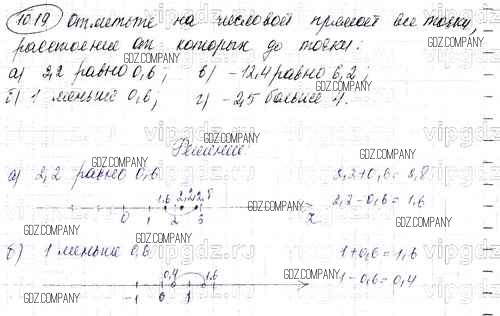 1019 Отметьте на числовой прямой все точки,
расстояние от которых до точки:
а) 2,2 равно 0,6; в) -12,4 равно 6,2;
б) 1 меньше 0,6; г) -2,5 больше 4.
GDZ.COMPANY
Решение.
а) 2,2 равно 0,6
2,2+0,6=2,8
2,2-0,6=1,6
1,6 2,2 2,8
0 1 2 3 x
б) 1 меньше 0,6
1+0,6=1,6
1-0,6=0,4
0,4 1,6
-1 0 1